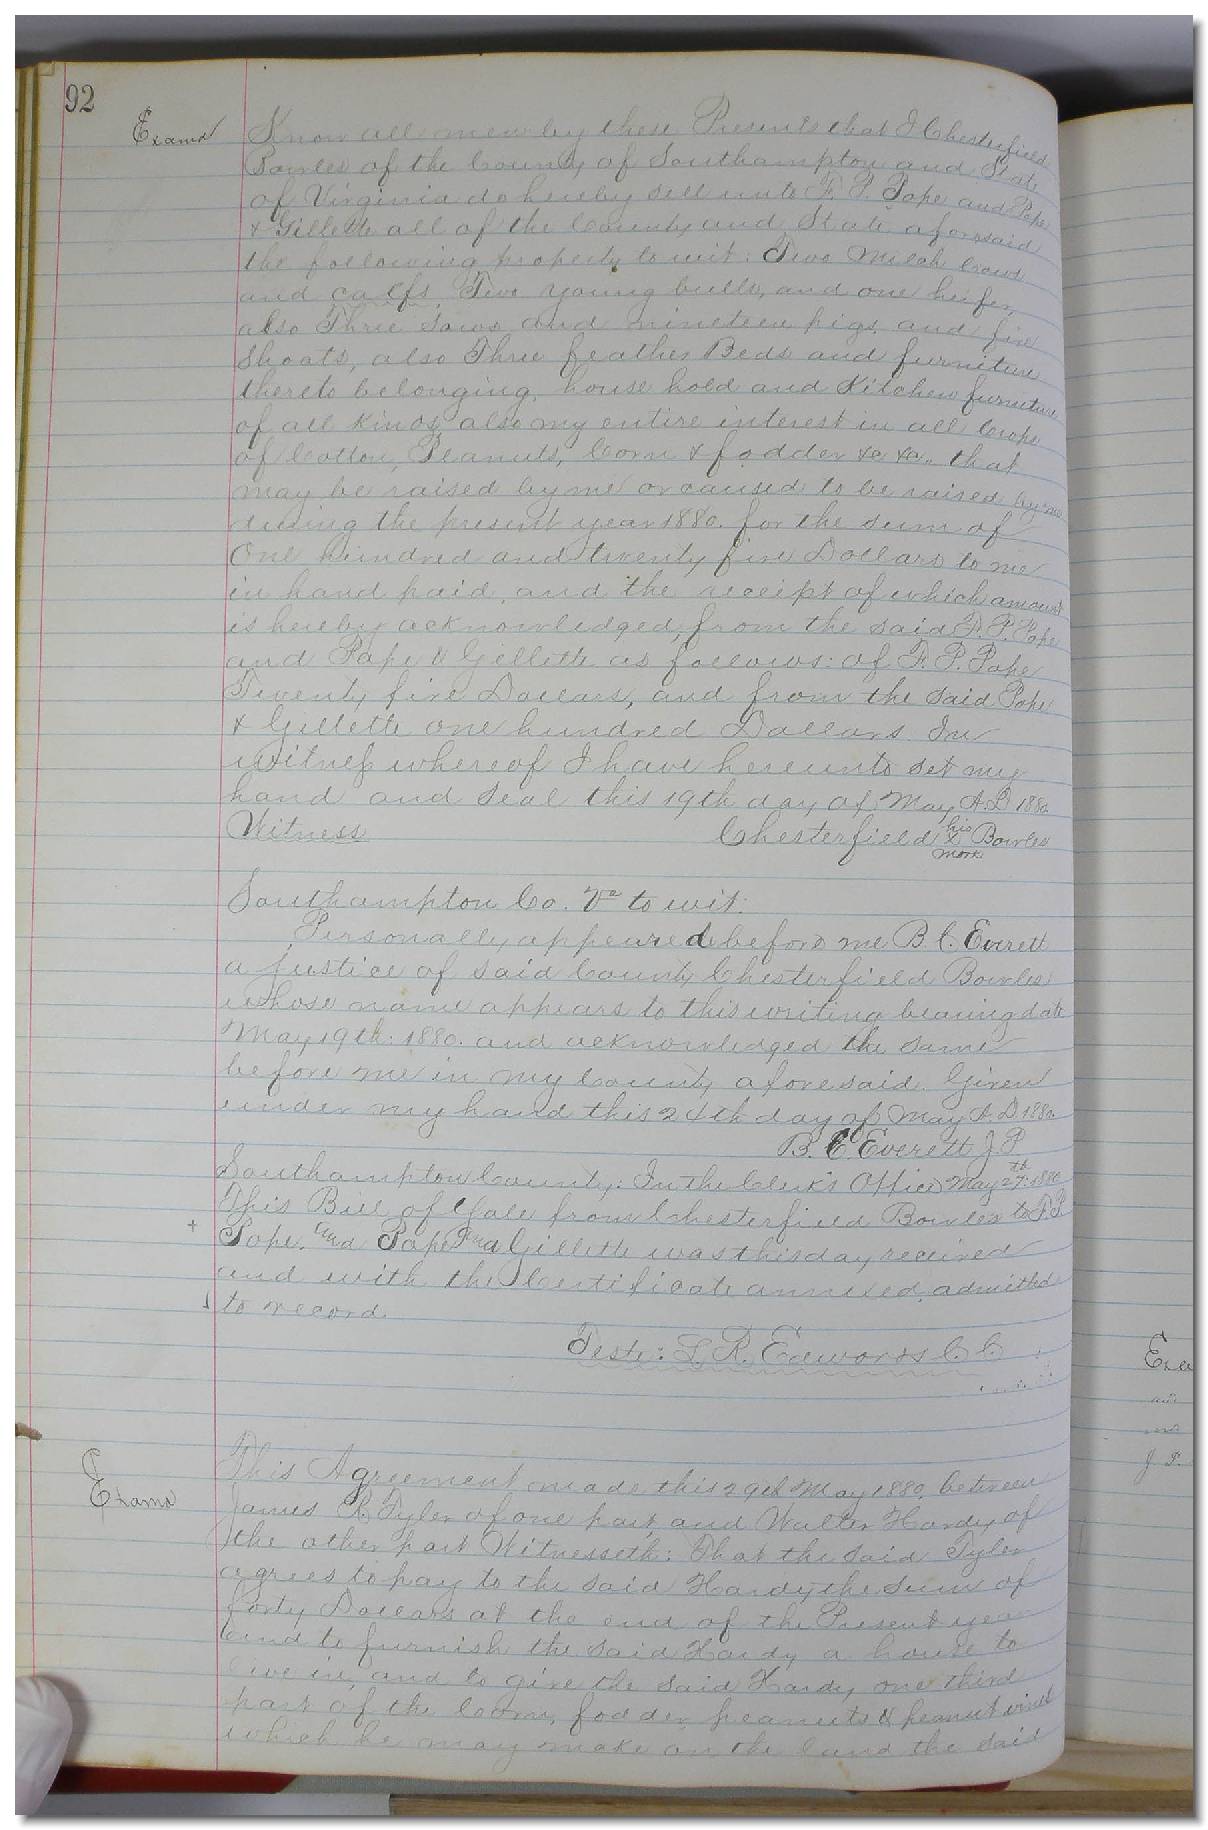 92
Examd
Know all men by these Presents that I Chesterfield
Bowles of the County of Southampton and State
of Virginia do hereby sell unto F. P. Pope and Pope
& Gillette all of the County and State aforesaid
the following property to wit: Two Milch Cows
and calfs, Two young bulls, and one heifer,
also Three Sows and nineteen pigs, and five
Shoats, also Three feather Beds and furniture
thereto belonging, house hold and Kitchen furniture
of all kinds, also my entire interest in all Crops
of Cotton, Peanuts, Corn & fodder &c &c., that
may be raised by me or caused to be raised by me
during the present year 1880. for the sum of
One hundred and twenty five Dollars to me
in hand paid, and the receipt of which amount
is hereby acknowledged, from the said F. P. Pope
and Pope & Gillette as follows: of F. P. Pope
Twenty five Dollars, and from the said Pope
& Gillette one hundred Dollars. In
witness whereof I have hereunto set my
hand and seal this 19th day of May A.D 1880.
Witness Chesterfield his X mark Bowles
Southampton Co. Va to wit:
Personally appeared before me B. C. Everett
a justice of said County Chesterfield Bowles
whose name appears to this writing bearing date
May 19th: 1880. and acknowledged the same
before me in my County aforesaid. Given
under my hand this 24th day of May A D 1880.
B. C. Everett J. P.
Southampton County: In the Clerk's Office May 27th: 1880
This Bill of Sale from Chesterfield Bowles to F. P.
Pope, and Pope and Gillette was this day received
and with the Certificate annexed, admitted
to record.
Teste: L. R. Edwards C. C
Examd
This Agreement made this 29th May 1880, between
James R. Tyler of one part, and Walter Hardy, of
the other part Witnesseth: That the said Tyler
agrees to pay to the said Hardy the sum of
forty Dollars at the end of the Present year
and to furnish the said Hardy a house to
live in, and to give the said Hardy, one third
part of the Corn, fodder, peanuts & peanut vines
which he may make on the land the said
Exa
J. P.